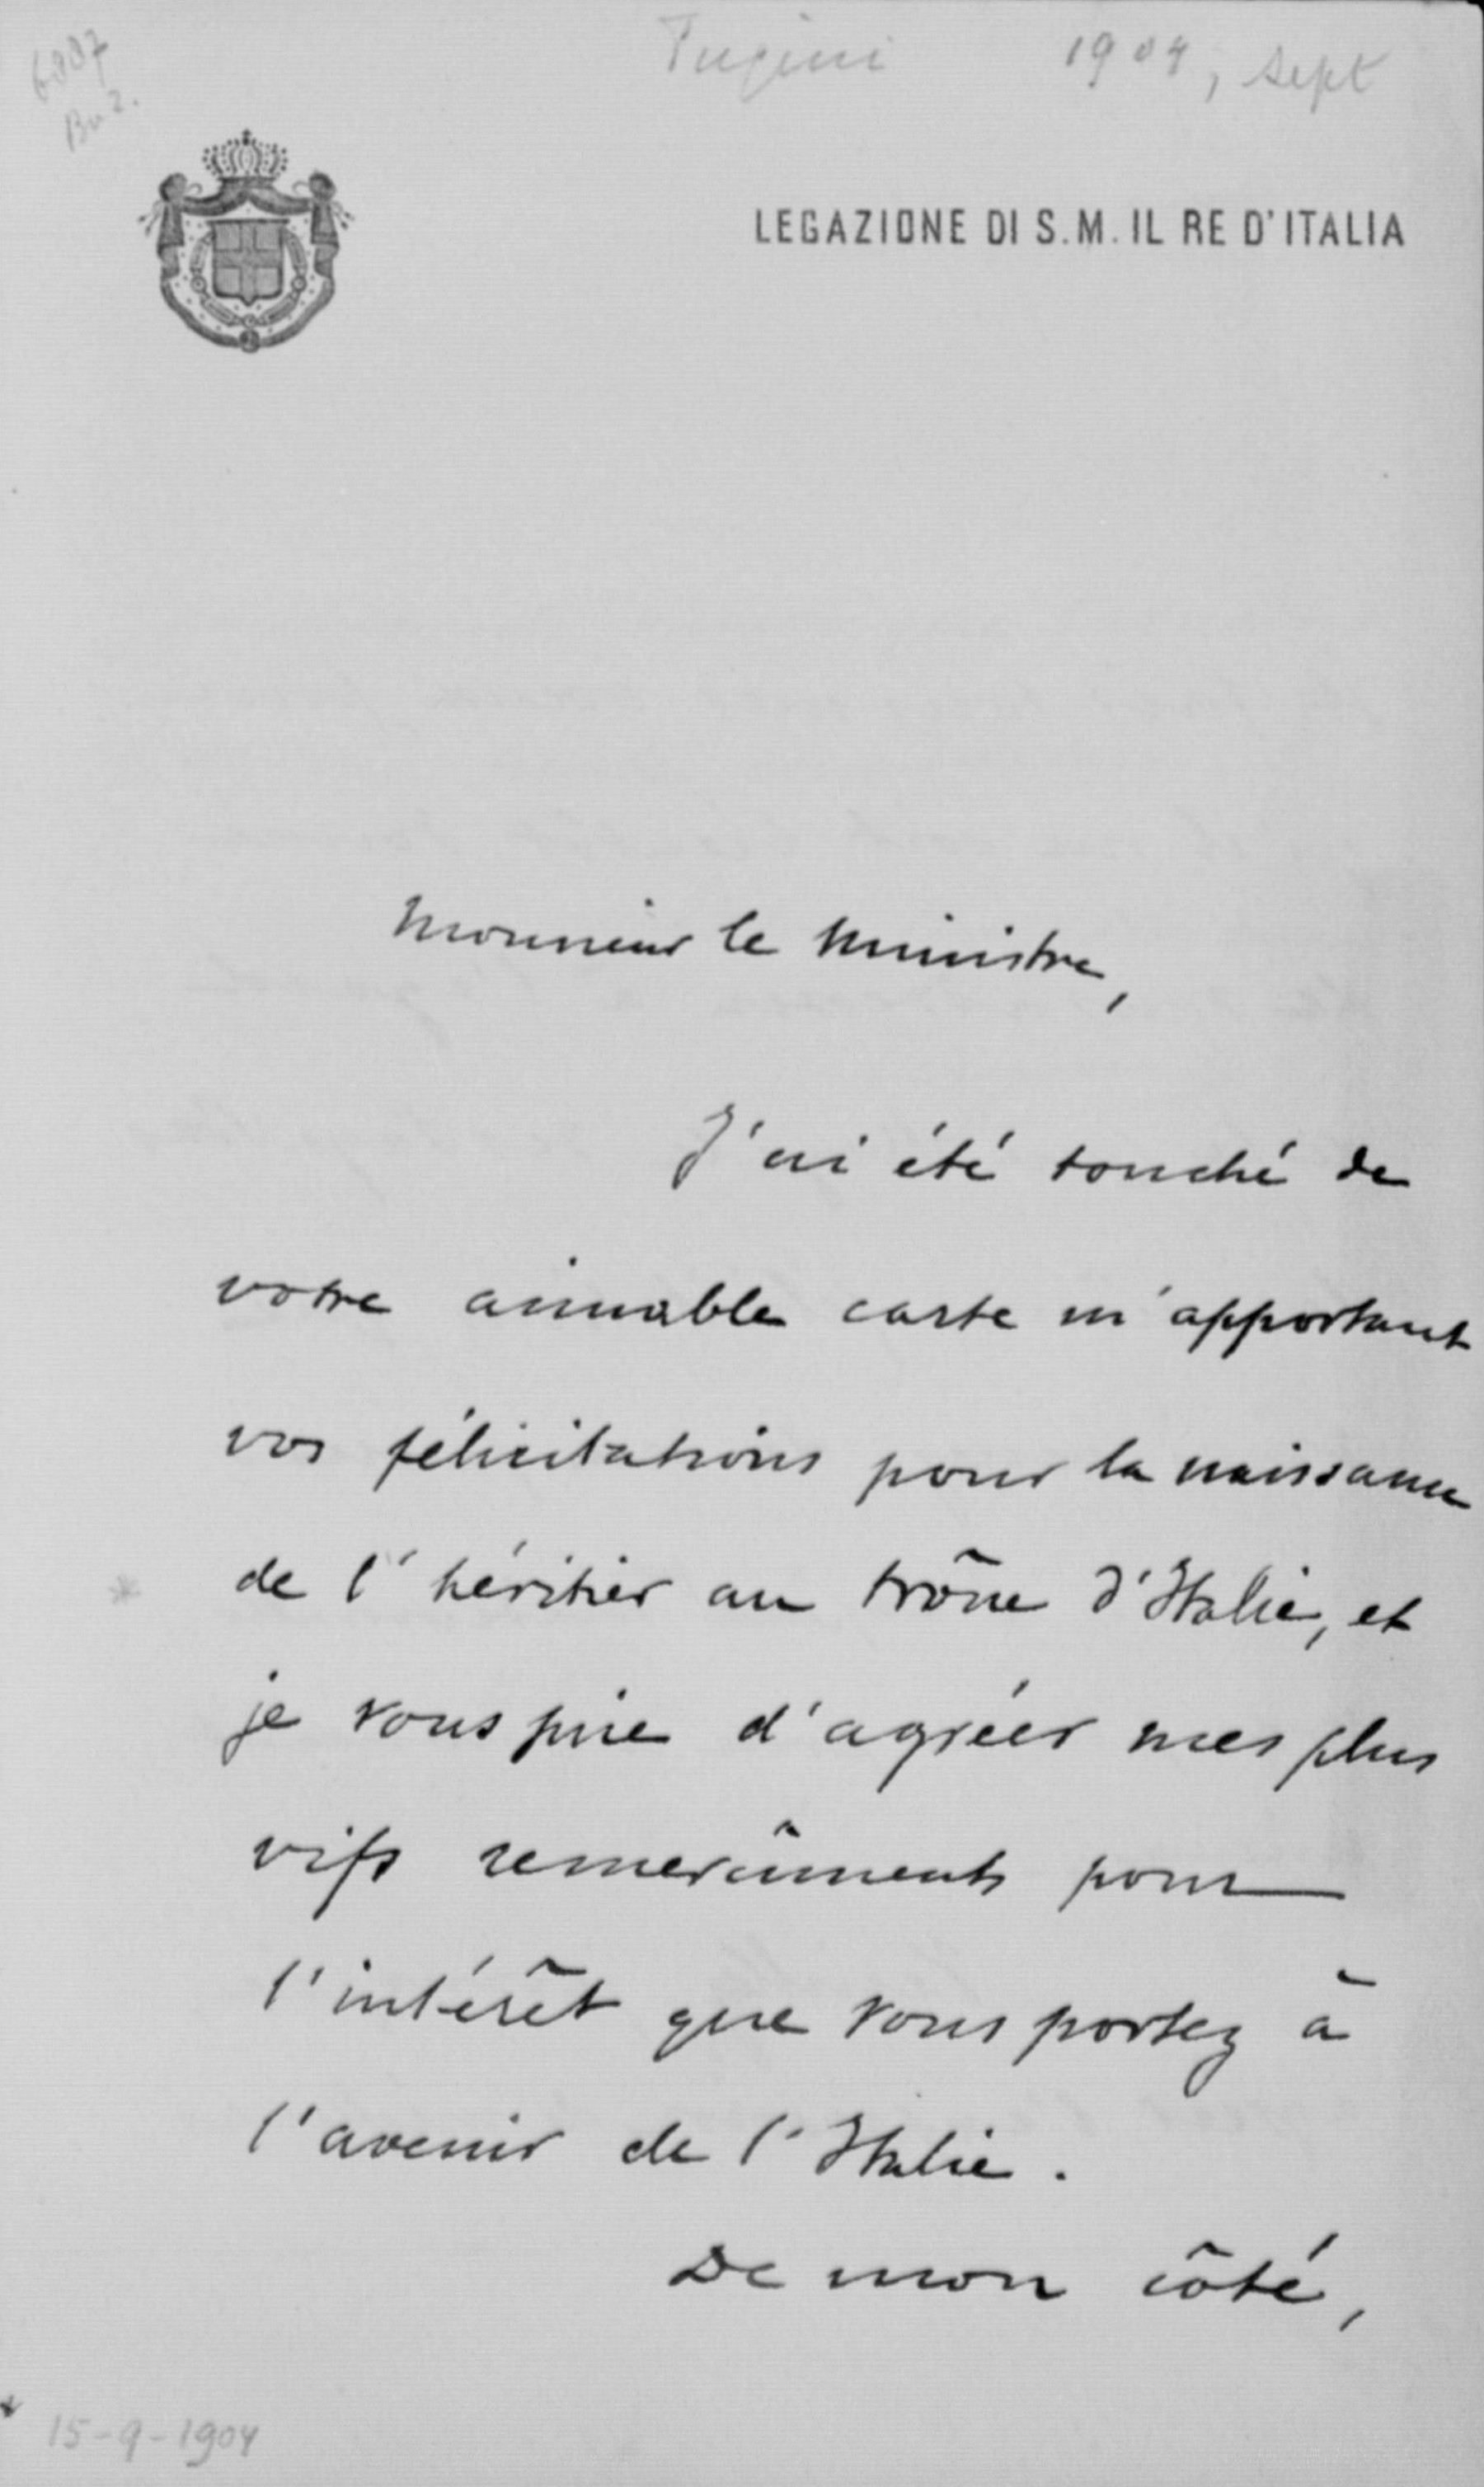 Tugini 1904, Sept
6887
Bu 2.
LEGAZIONE DI S.M. IL RE D'ITALIA
Monsieur le Ministre,
J'ai été touché de
votre aimable carte m'apportant
vos félicitations pour la naissance
de l'héritier au trône d'Italie, et
je vous prie d'agréer mes plus
vifs remercîments pour
l'intérêt que vous portez à
l'avenir de l'Italie.
De mon côté,
* 15-9-1904